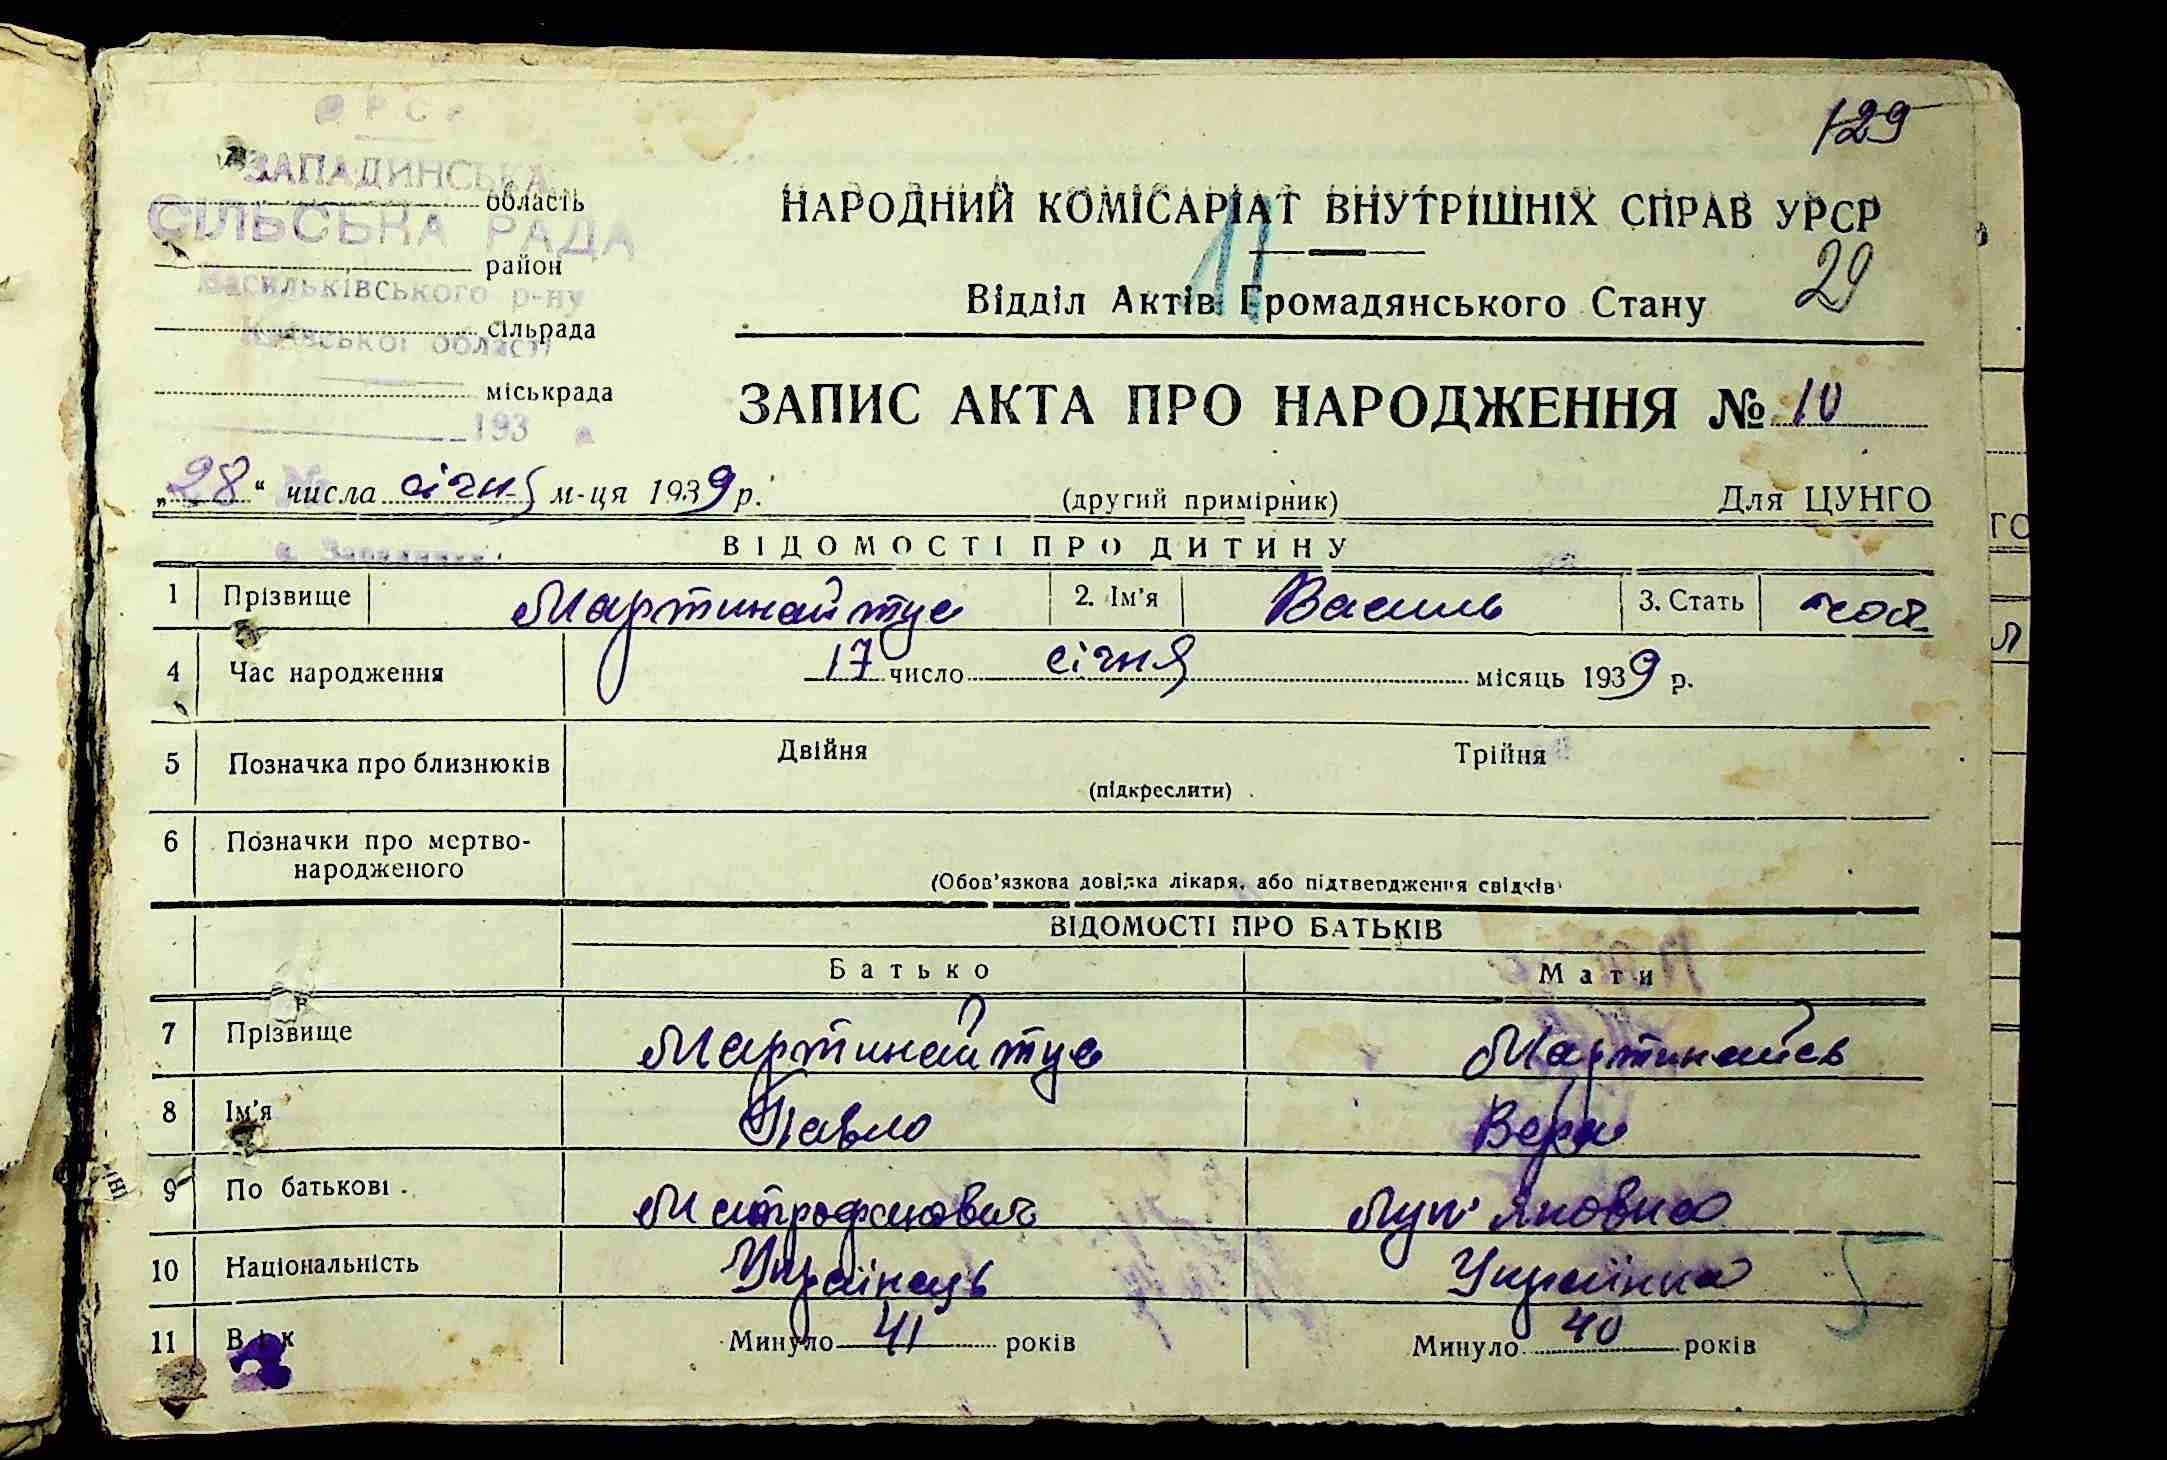 129
УРСР
ЗАПАДИНСЬКА
область
СІЛЬСЬКА РАДА
район
Васильківського р-ну
сільрада
Київської області
міськрада
193
НАРОДНИЙ КОМІСАРІАТ ВНУТРІШНІХ СПРАВ УРСР
11
29
Відділ Актів Громадянського Стану
ЗАПИС АКТА ПРО НАРОДЖЕННЯ № 10
№
„28“ числа січня м-ця 1939 р.
(другий примірник)
Для ЦУНГО
ВІДОМОСТІ ПРО ДИТИНУ
1 Прізвище Мартинайтус 2. Ім'я Василь 3. Стать чол
4 Час народження 17 число січня місяць 1939 р.
5 Позначка про близнюків Двійня Трійня
(підкреслити)
6 Позначки про мертво-
народженого
(Обов'язкова довідка лікаря, або підтвердження свідків)
ВІДОМОСТІ ПРО БАТЬКІВ
Батько Мати
7 Прізвище Мартинайтус
8 Ім'я Павло Вера
9 По батькові Митрофанович Луп'яновна
10 Національність Українець Українка
11 Вік Минуло 41 років Минуло 40 років